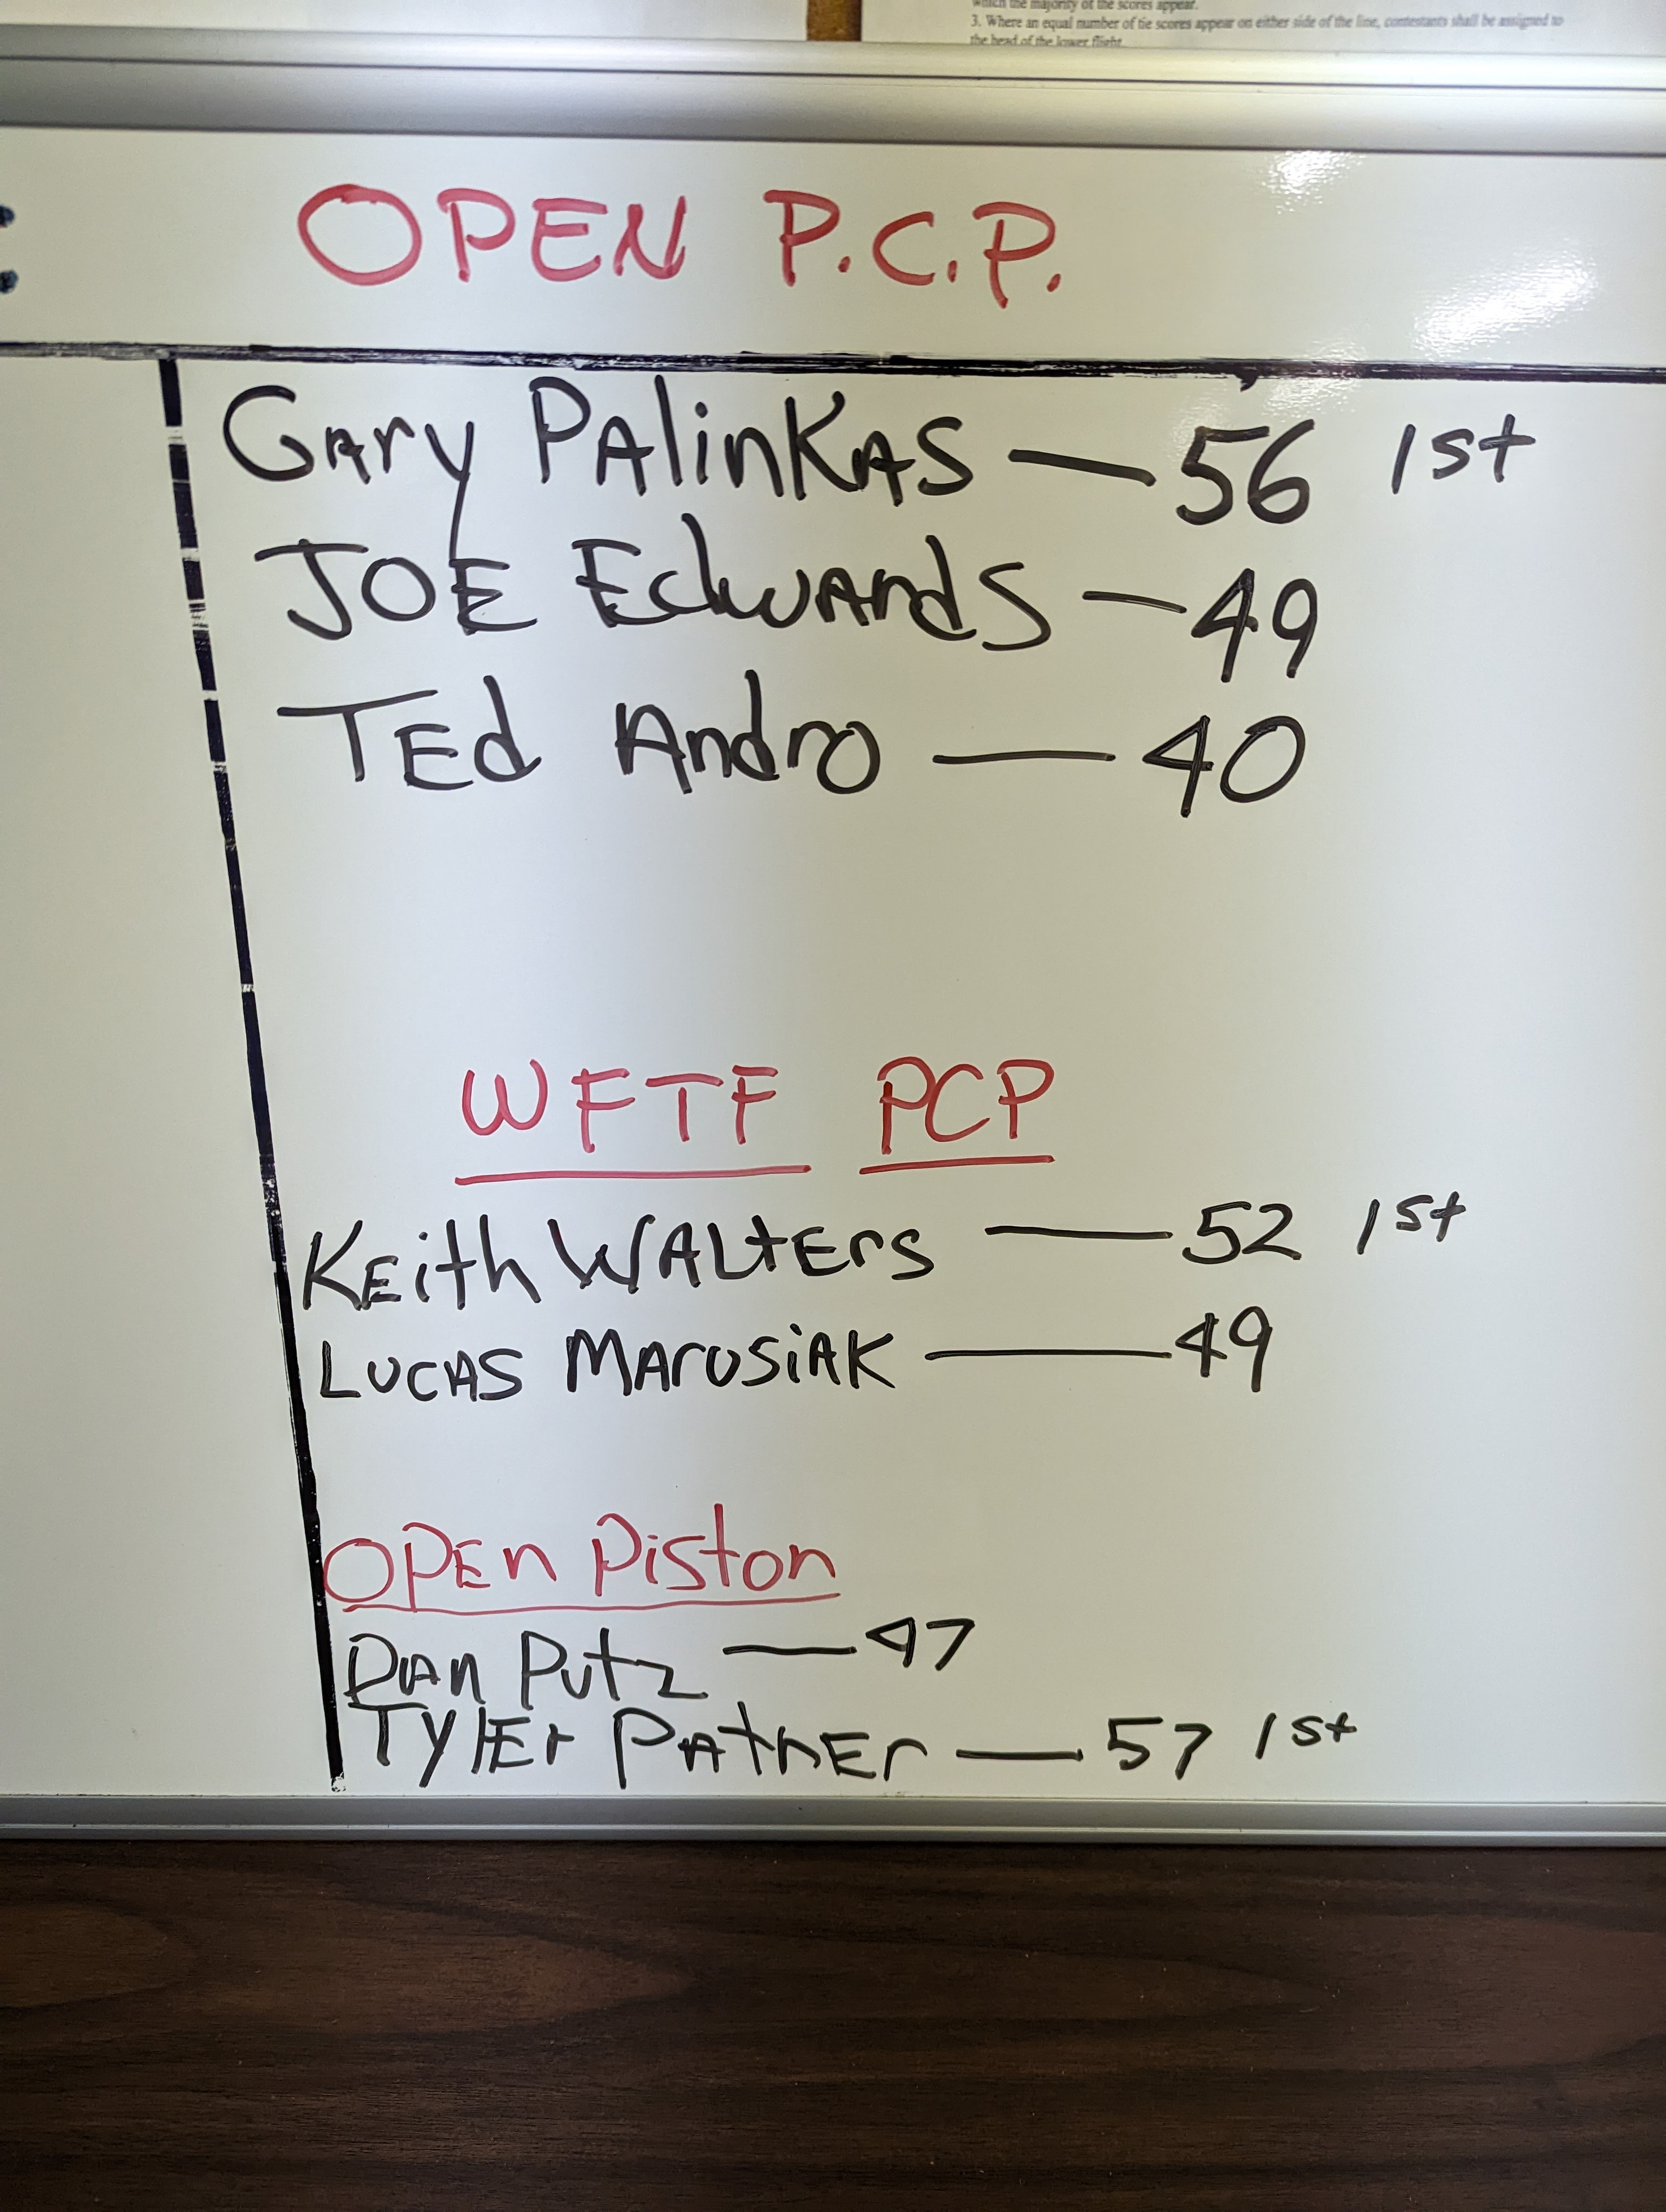 which the majority of the scores appear.
3. Where an equal number of tie scores appear on either side of the line, contestants shall be assigned to
the head of the lower flight.
OPEN P.C.P.
GAry PAlinKAS — 56 1st
JOE EdwArds — 49
TEd Andro — 40
WFTF PCP
KEith WALtErs — 52 1st
LUCAS MArusiAK — 49
OPEn Piston
DAn Putz — 47
TylEr PAtnEr — 57 1st